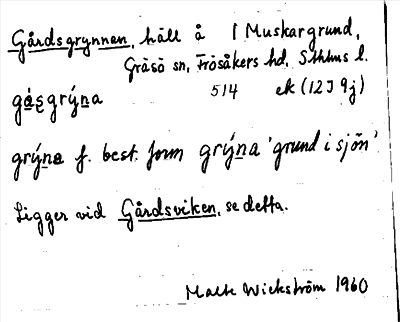 Gårdsgrynnan, häll å I Muskargrund,
Gräsö sn, Frösåkers hd, Sthlms l.
gá̱s̨grýna 514 ek (12I 9j)
grýna f. best. form grýna 'grund i sjön'.
Ligger vid Gårdsviken, se detta.
Malte Wickström 1960